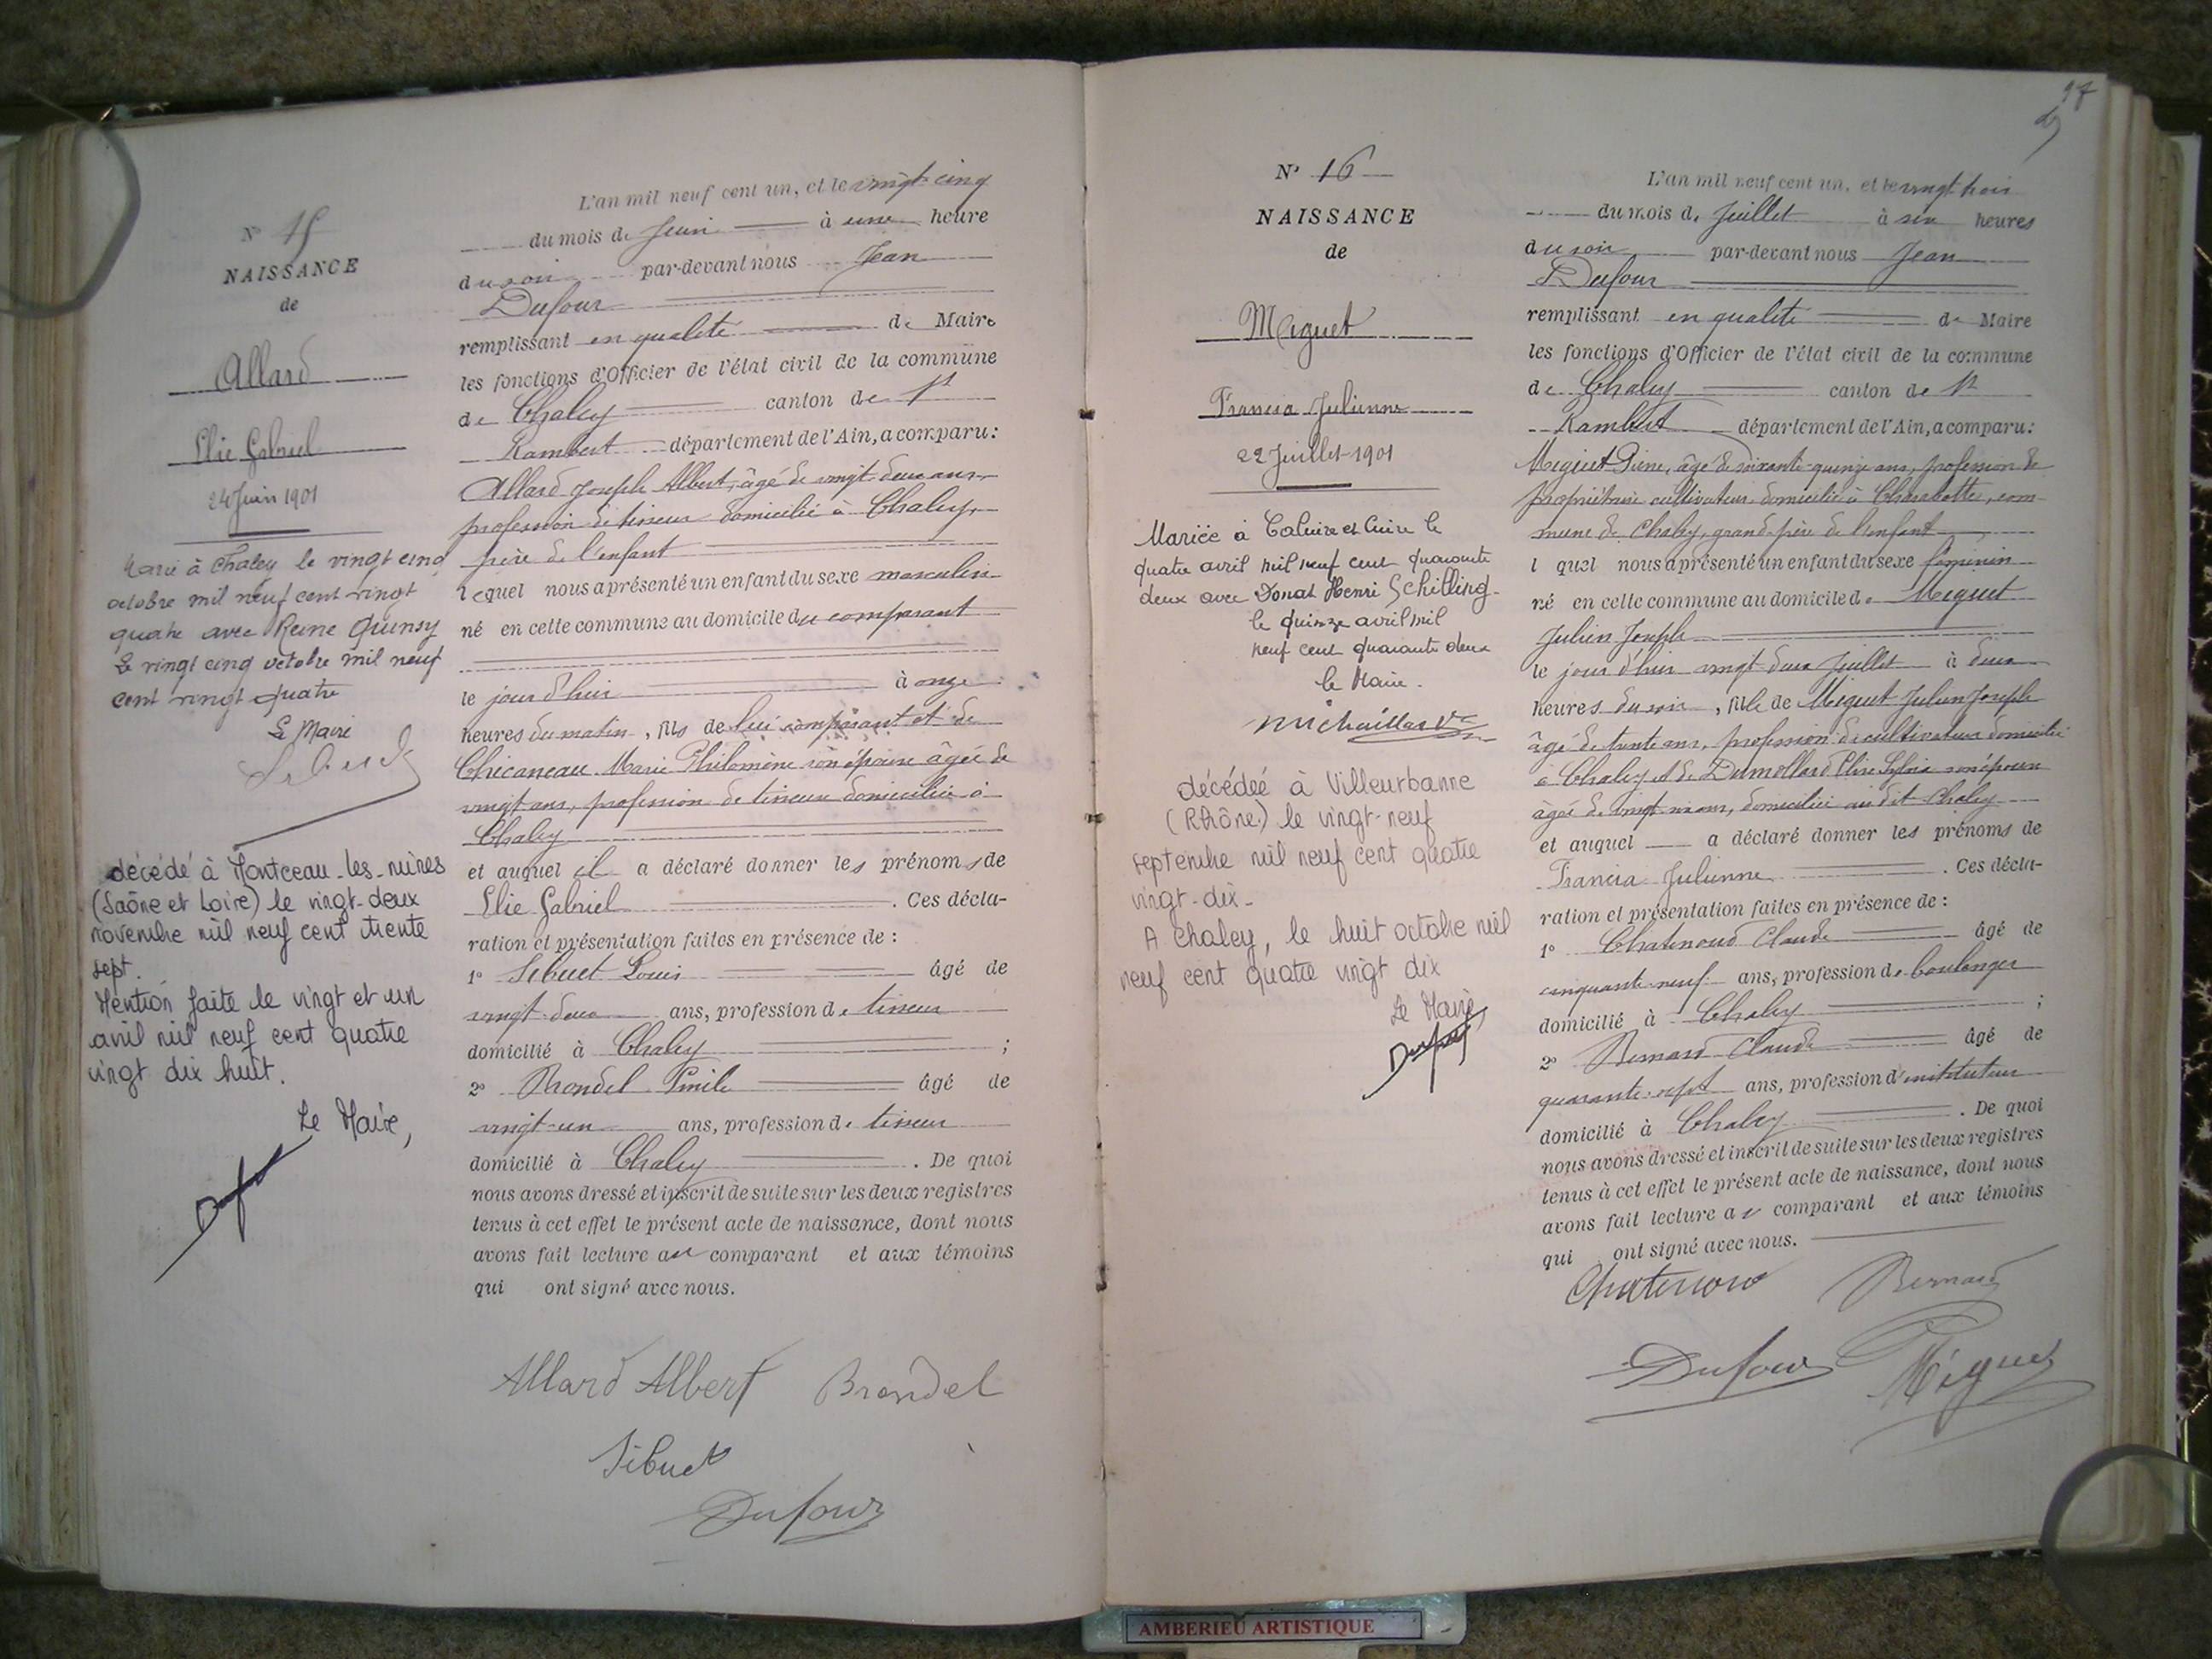 N° 15
NAISSANCE
de
Allard
Elie Gabriel
24 Juin 1901
Marié à Chaley le vingt cinq
octobre mil neuf cent vingt
quatre avec Reine Quinsy
Le vingt cinq octobre mil neuf
cent vingt quatre
Le Maire
décédé à Montceau-les-mines
(Saône et Loire) le vingt-deux
novembre mil neuf cent trente
sept.
Mention faite le vingt et un
avril mil neuf cent quatre
vingt dix huit.
Le Maire,
L'an mil neuf cent un, et le vingt-cinq
du mois de Juin à une heure
du soir par-devant nous Jean
Dufour
remplissant en qualité de Maire
les fonctions d'Officier de l'état civil de la commune
de Chaley canton de St
Rambert département de l'Ain, a comparu:
Allard Joseph Albert, âgé de vingt-deux ans,
profession de tisseur domicilié à Chaley,
père de l'enfant
lequel nous a présenté un enfant du sexe masculin
né en cette commune au domicile du comparant
le jour d'hier à onze
heures du matin, fils de lui comparant et de
Chicaneau Marie Philomène son épouse âgée de
vingt ans, profession de tisseuse domiciliée à
Chaley
et auquel il a déclaré donner les prénoms de
Elie Gabriel. Ces décla-
ration et présentation faites en présence de :
1° Sibuet Louis âgé de
vingt-deux ans, profession de tisseur
domicilié à Chaley ;
2° Brondel Emile âgé de
vingt-un ans, profession de tisseur
domicilié à Chaley. De quoi
nous avons dressé et inscrit de suite sur les deux registres
tenus à cet effet le présent acte de naissance, dont nous
avons fait lecture au comparant et aux témoins
qui ont signé avec nous.
Allard Albert Brondel
Sibuet
Dufour
97
N° 16
NAISSANCE
de
Miguet
Francia Julienne
22 Juillet 1901
Mariée à Caluire et Cuire le
quatre avril mil neuf cent quarante
deux avec Donat Henri Schilling
le quinze avril mil
neuf cent quarante deux
le Maire.
décédée à Villeurbanne
(Rhône) le vingt-neuf
septembre mil neuf cent quatre
vingt-dix-
A Chaley, le huit octobre mil
neuf cent quatre vingt dix
Le Maire,
L'an mil neuf cent un, et le vingt trois
du mois de Juillet à six heures
du soir par-devant nous Jean
Dufour
remplissant en qualité de Maire
les fonctions d'Officier de l'état civil de la commune
de Chaley canton de St
Rambert département de l'Ain, a comparu:
Miguet Pierre, âgé de soixante-quinze ans, profession de
propriétaire cultivateur domicilié à Charabotte, com-
mune de Chaley, grand-père de l'enfant
lquel nous a présenté un enfant du sexe féminin
né en cette commune au domicile de Miguet
Julien Joseph
le jour d'hier vingt deux Juillet à deux
heures du soir, fille de Miguet Julien Joseph
âgé de trente ans, profession de cultivateur domicilié
à Chaley et de Dumollard son épouse
âgée de vingt ans, domiciliée au dit Chaley
et auquel a déclaré donner les prénoms de
Francia Julienne. Ces décla-
ration et présentation faites en présence de :
1° Chatenoud Claude âgé de
cinquante-neuf ans, profession de boulanger
domicilié à Chaley ;
2° Bernard Claude âgé de
quarante-sept ans, profession d'instituteur
domicilié à Chaley. De quoi
nous avons dressé et inscrit de suite sur les deux registres
tenus à cet effet le présent acte de naissance, dont nous
avons fait lecture au comparant et aux témoins
qui ont signé avec nous.
Chatenoud Bernard
Dufour Miguet
AMBERIEU ARTISTIQUE